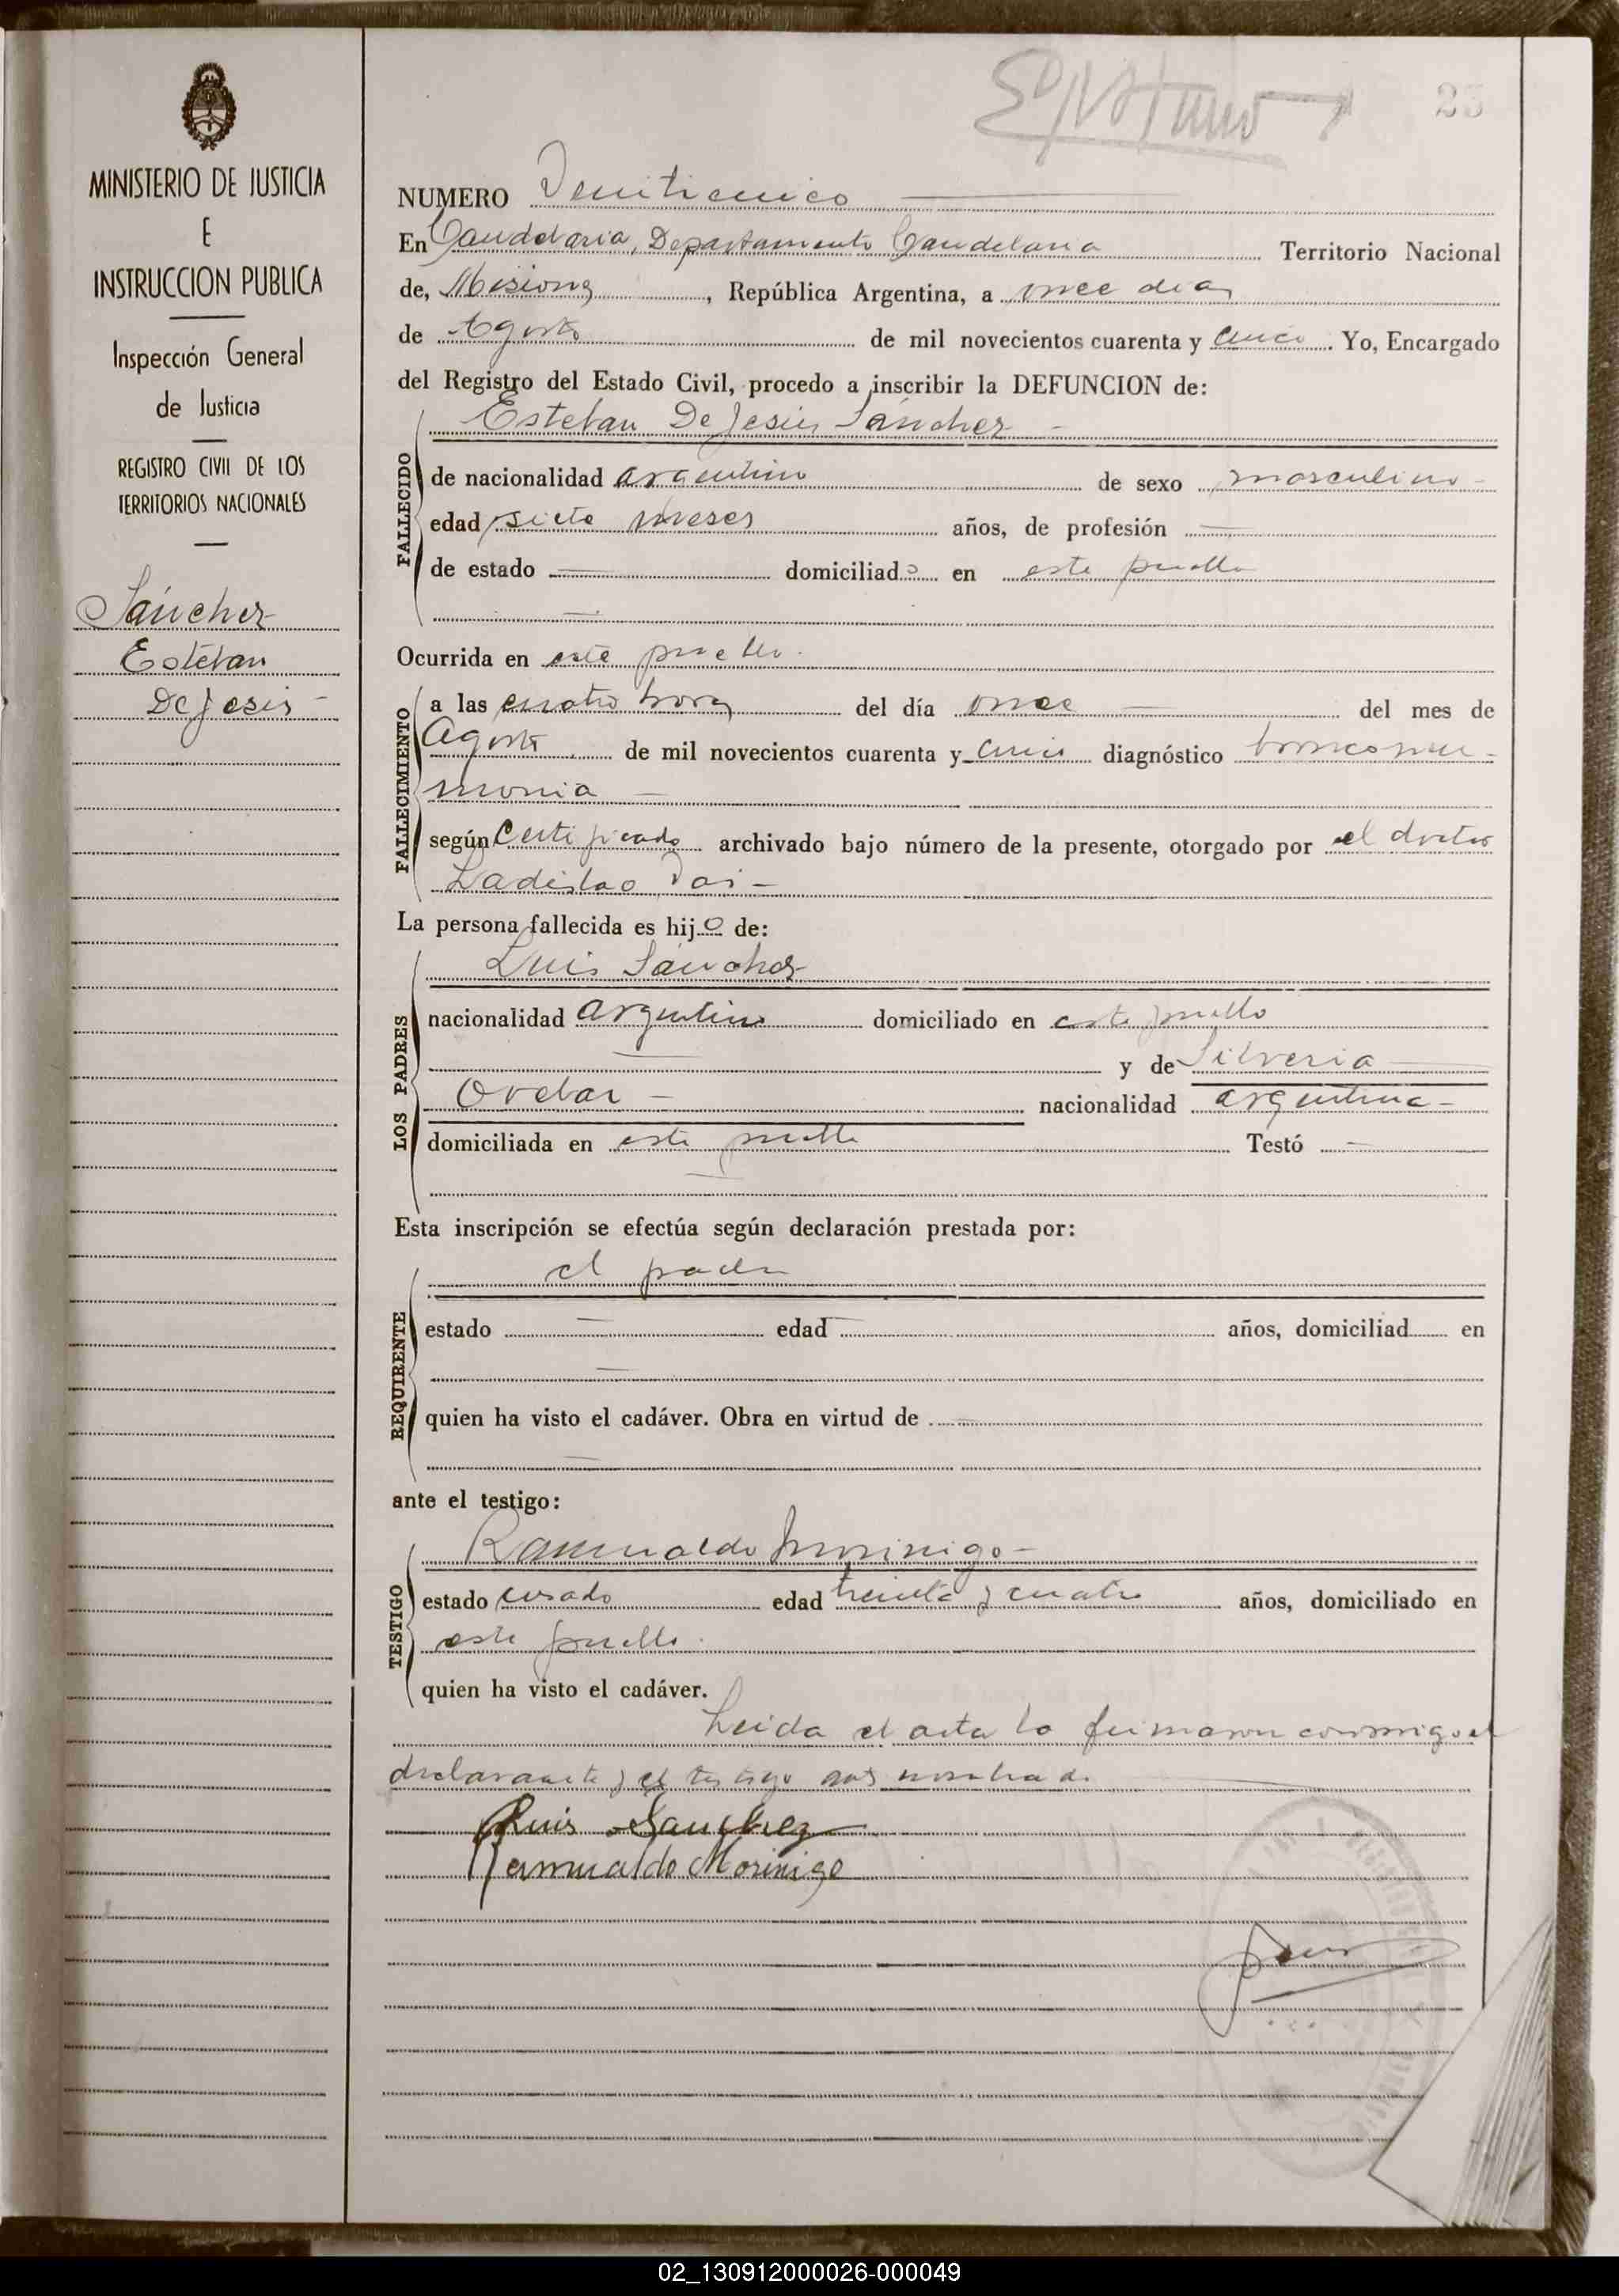 23
MINISTERIO DE JUSTICIA
E
INSTRUCCION PUBLICA
Inspección General
de Justicia
REGISTRO CIVIL DE LOS
TERRITORIOS NACIONALES
Sánchez
Esteban
De Jesús
NUMERO Veinticinco
En Candelaria, Departamento Candelaria Territorio Nacional
de, Misiones, República Argentina, a once días
de Agosto de mil novecientos cuarenta y cinco. Yo, Encargado
del Registro del Estado Civil, procedo a inscribir la DEFUNCION de:
Esteban De Jesús Sánchez
FALLECIDO
de nacionalidad argentino de sexo masculino
edad siete meses años, de profesión
de estado domiciliado en este pueblo
Ocurrida en este pueblo.
FALLECIMIENTO
a las cuatro horas del día once del mes de
Agosto de mil novecientos cuarenta y cinco diagnóstico bronconeu-
monia
según Certificado archivado bajo número de la presente, otorgado por el doctor
Ladislao
La persona fallecida es hijo de:
Luis Sánchez
LOS PADRES
nacionalidad argentino domiciliado en este pueblo
y de Silveria
Ovelar nacionalidad argentina
domiciliada en este pueblo Testó
Esta inscripción se efectúa según declaración prestada por:
el padre
REQUIRENTE
estado edad años, domiciliad en
quien ha visto el cadáver. Obra en virtud de
ante el testigo:
Ramualdo Morinigo
TESTIGO
estado casado edad treinta y cuatro años, domiciliado en
este pueblo.
quien ha visto el cadáver.
Leida el acta la firmaron conmigo el
declarante y el testigo nombrado
Luis Sanchez
Ramualdo Morinigo
02_130912000026-000049